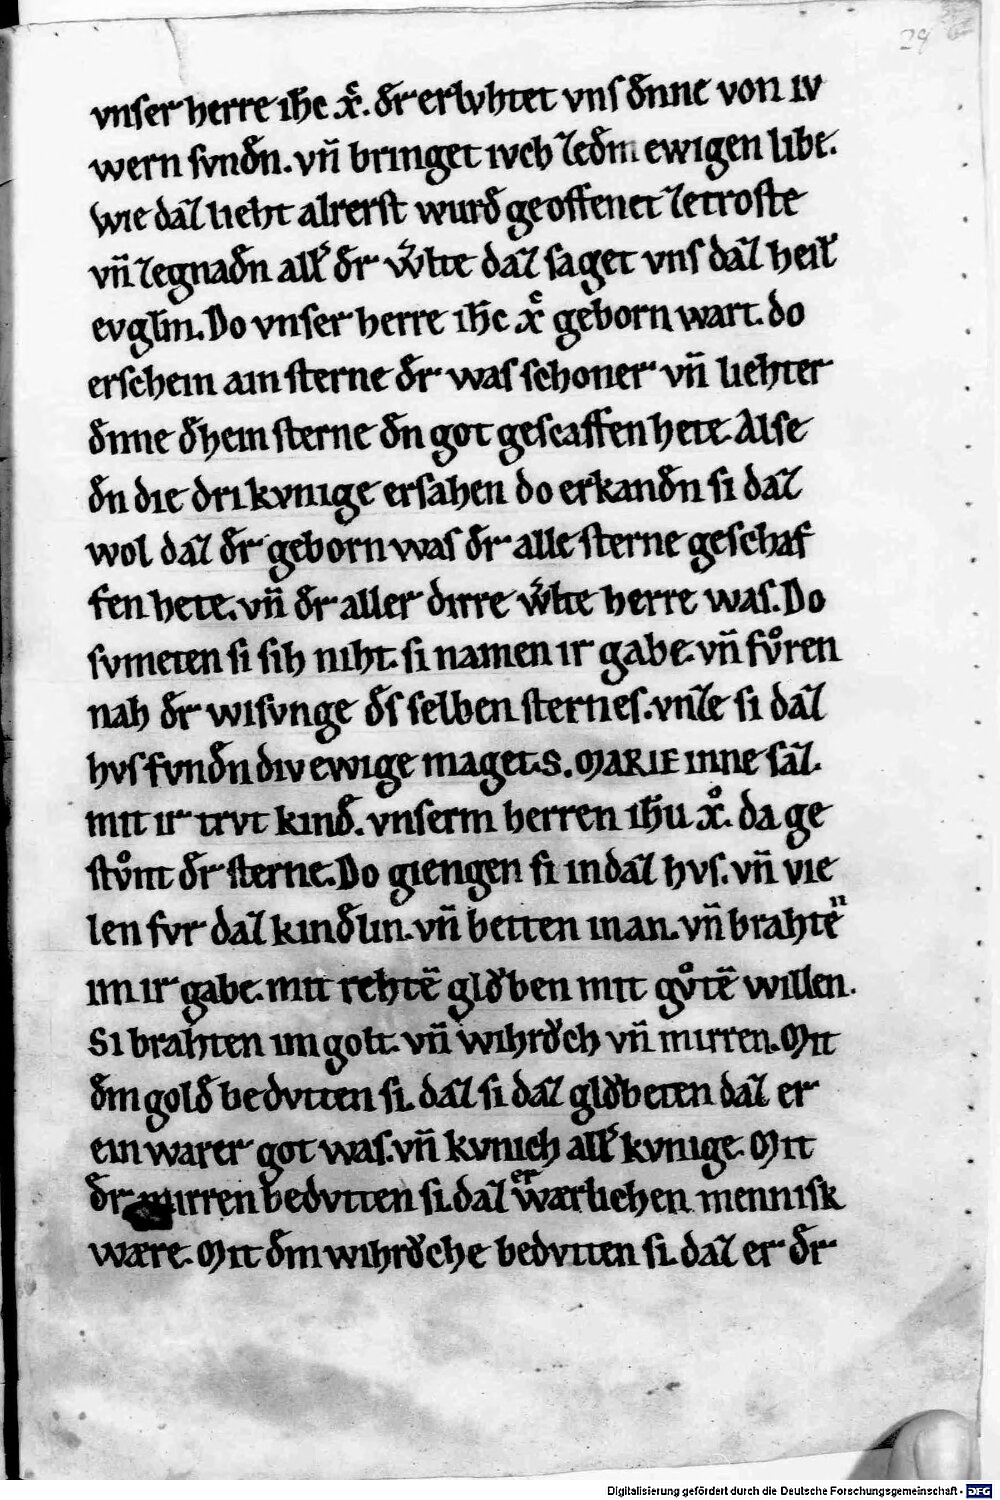 29
vnſer herre ih̄c x̄c. đr erlvhtet vnſ đnne von iv
wern ſvnđn. vn̄ bringet ivch zeđm ewigen libe.
Wie daz lieht alrerſt wurđ geoffenet zetroſte
vn̄ zegnađn all͛ đr w͛lte daz ſaget vnſ daz heil͛
evgl̄m. Do vnſer herre ih̄c x̄c geborn wart. do
erſchein ain ſterne đr was ſchoner vn̄ liehter
đnne đhein ſterne đn got geſcaffen hete. Alſe
đn die dri kvnige erſahen do erkanđn ſi daz
wol daz đr geborn waſ đr alle ſterne geſchaf
fen hete. vn̄ đr aller dirre w͛lte herre waſ. Do
ſvmeten ſi ſih niht. ſi namen ir gabe. vn̄ fvͦren
nah đr wiſvnge đſ ſelben ſterneſ. vnze ſi daz
hvſ fvnđn div ewige maget. S. MARIE inne ſaz.
mit ir trvt kinđ. vnſerm herren ih̄u x̄o. da ge
ſtvͦnt đr ſterne. Do giengen ſi in daz hvſ. vn̄ vie
len fvr daz kinđlin. vn̄ betten inan. vn̄ brahtēn
im ir gabe. mit rehtē glovben mit gvͦtē willen.
Si brahten im golt. vn̄ wihrovch vn̄ mirren. Mit
đm golđ bedvtten ſi. daz ſi daz glovbeten daz er
ein warer got waſ. vn̄ kvnich all͛ kvnige. Mit
đr mirren bedvtten ſi. daz er wærlichen menniſk
wære. Mit đm wihrovche bedvtten ſi. daz er đr
Digitalisierung gefördert durch die Deutsche Forschungsgemeinschaft - DFG